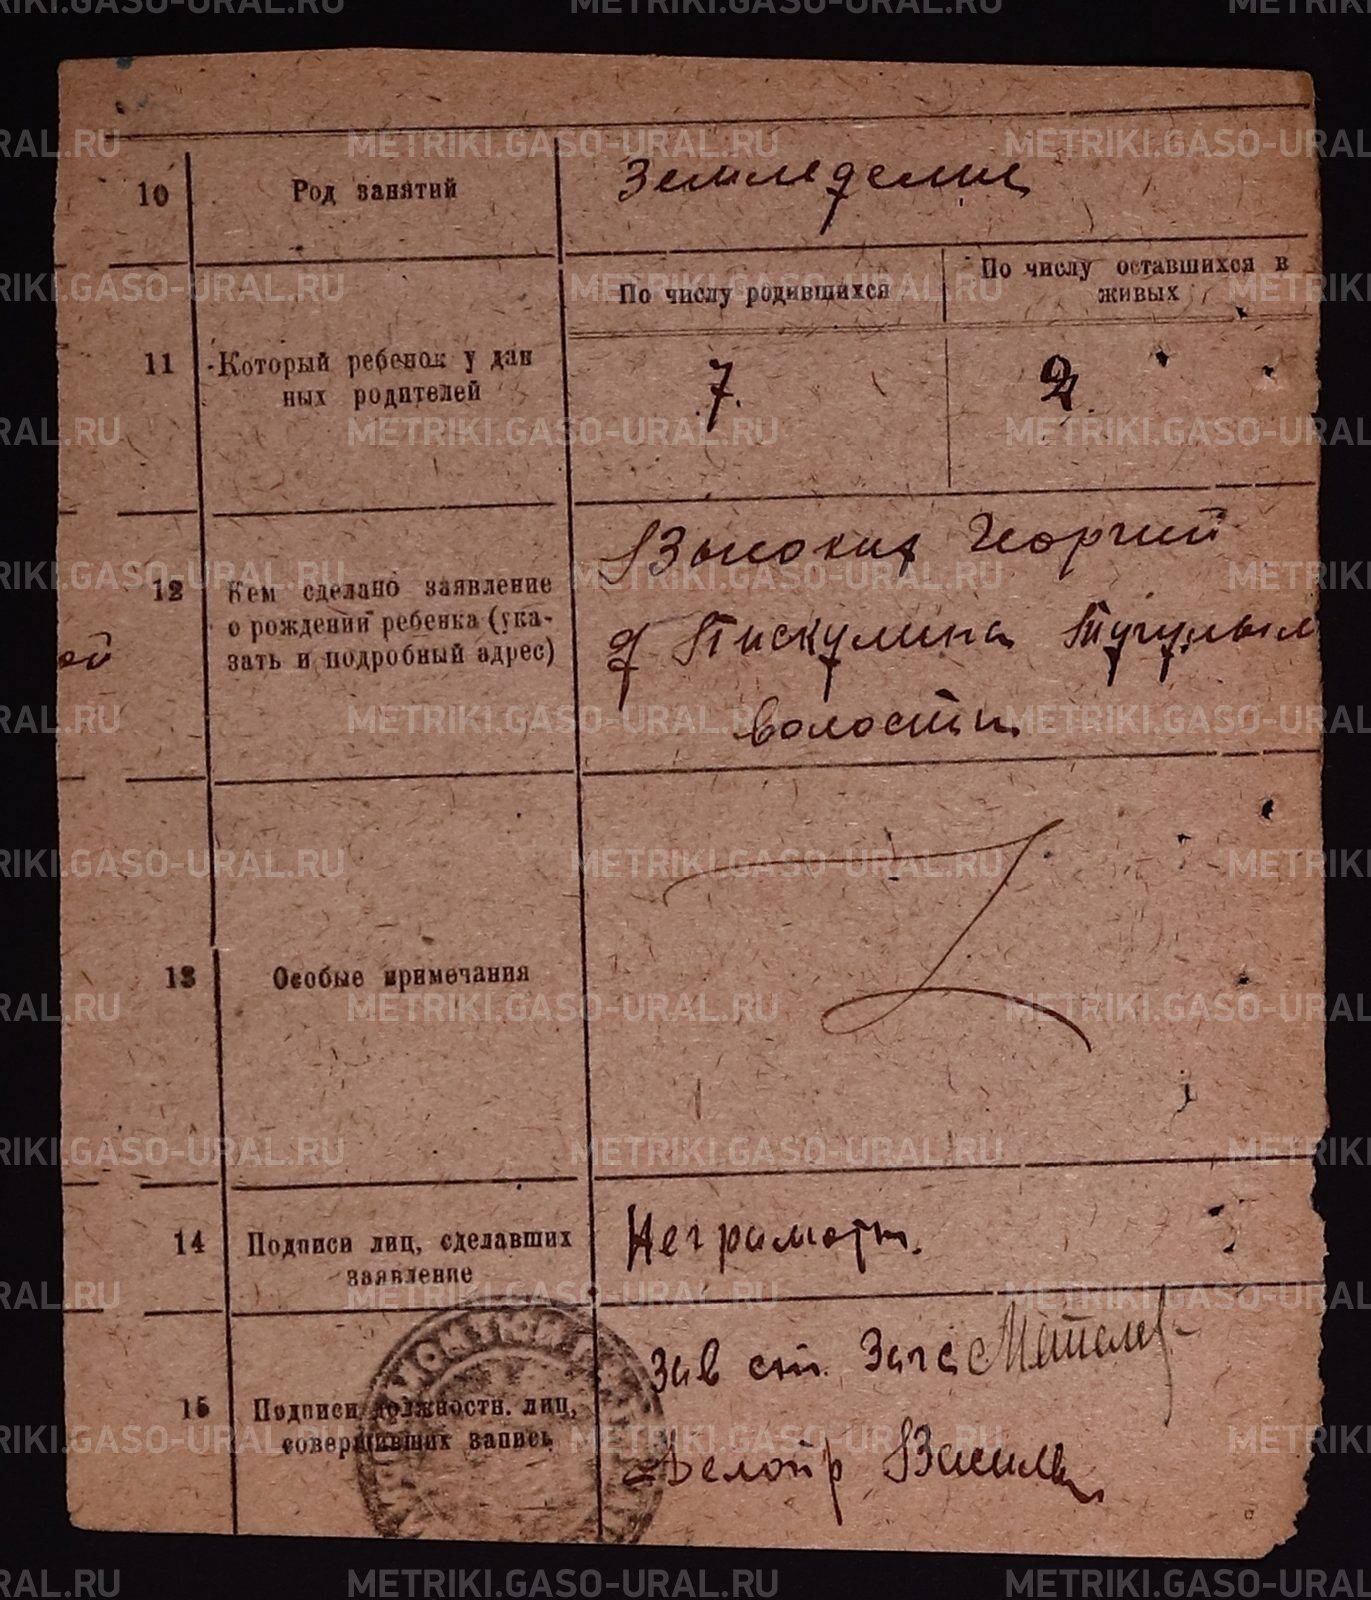 10 Род занятий Земледелие
По числу родившихся По числу оставшихся в живых
11 Который ребенок у дан
ных родителей
7. 2.
12 Кем сделано заявление
о рождении ребенка (ука-
зать и подробный адрес)
Высоких Георгий
д Пискулина Тугулым
волости
ой
13 Особые примечания
14 Подписи лиц, сделавших
заявление
Неграмотн.
15 Подписи должностн. лиц,
совершивших запись
Зав ст. Загс
Делопр
METRIKI.GASO-URAL.RU